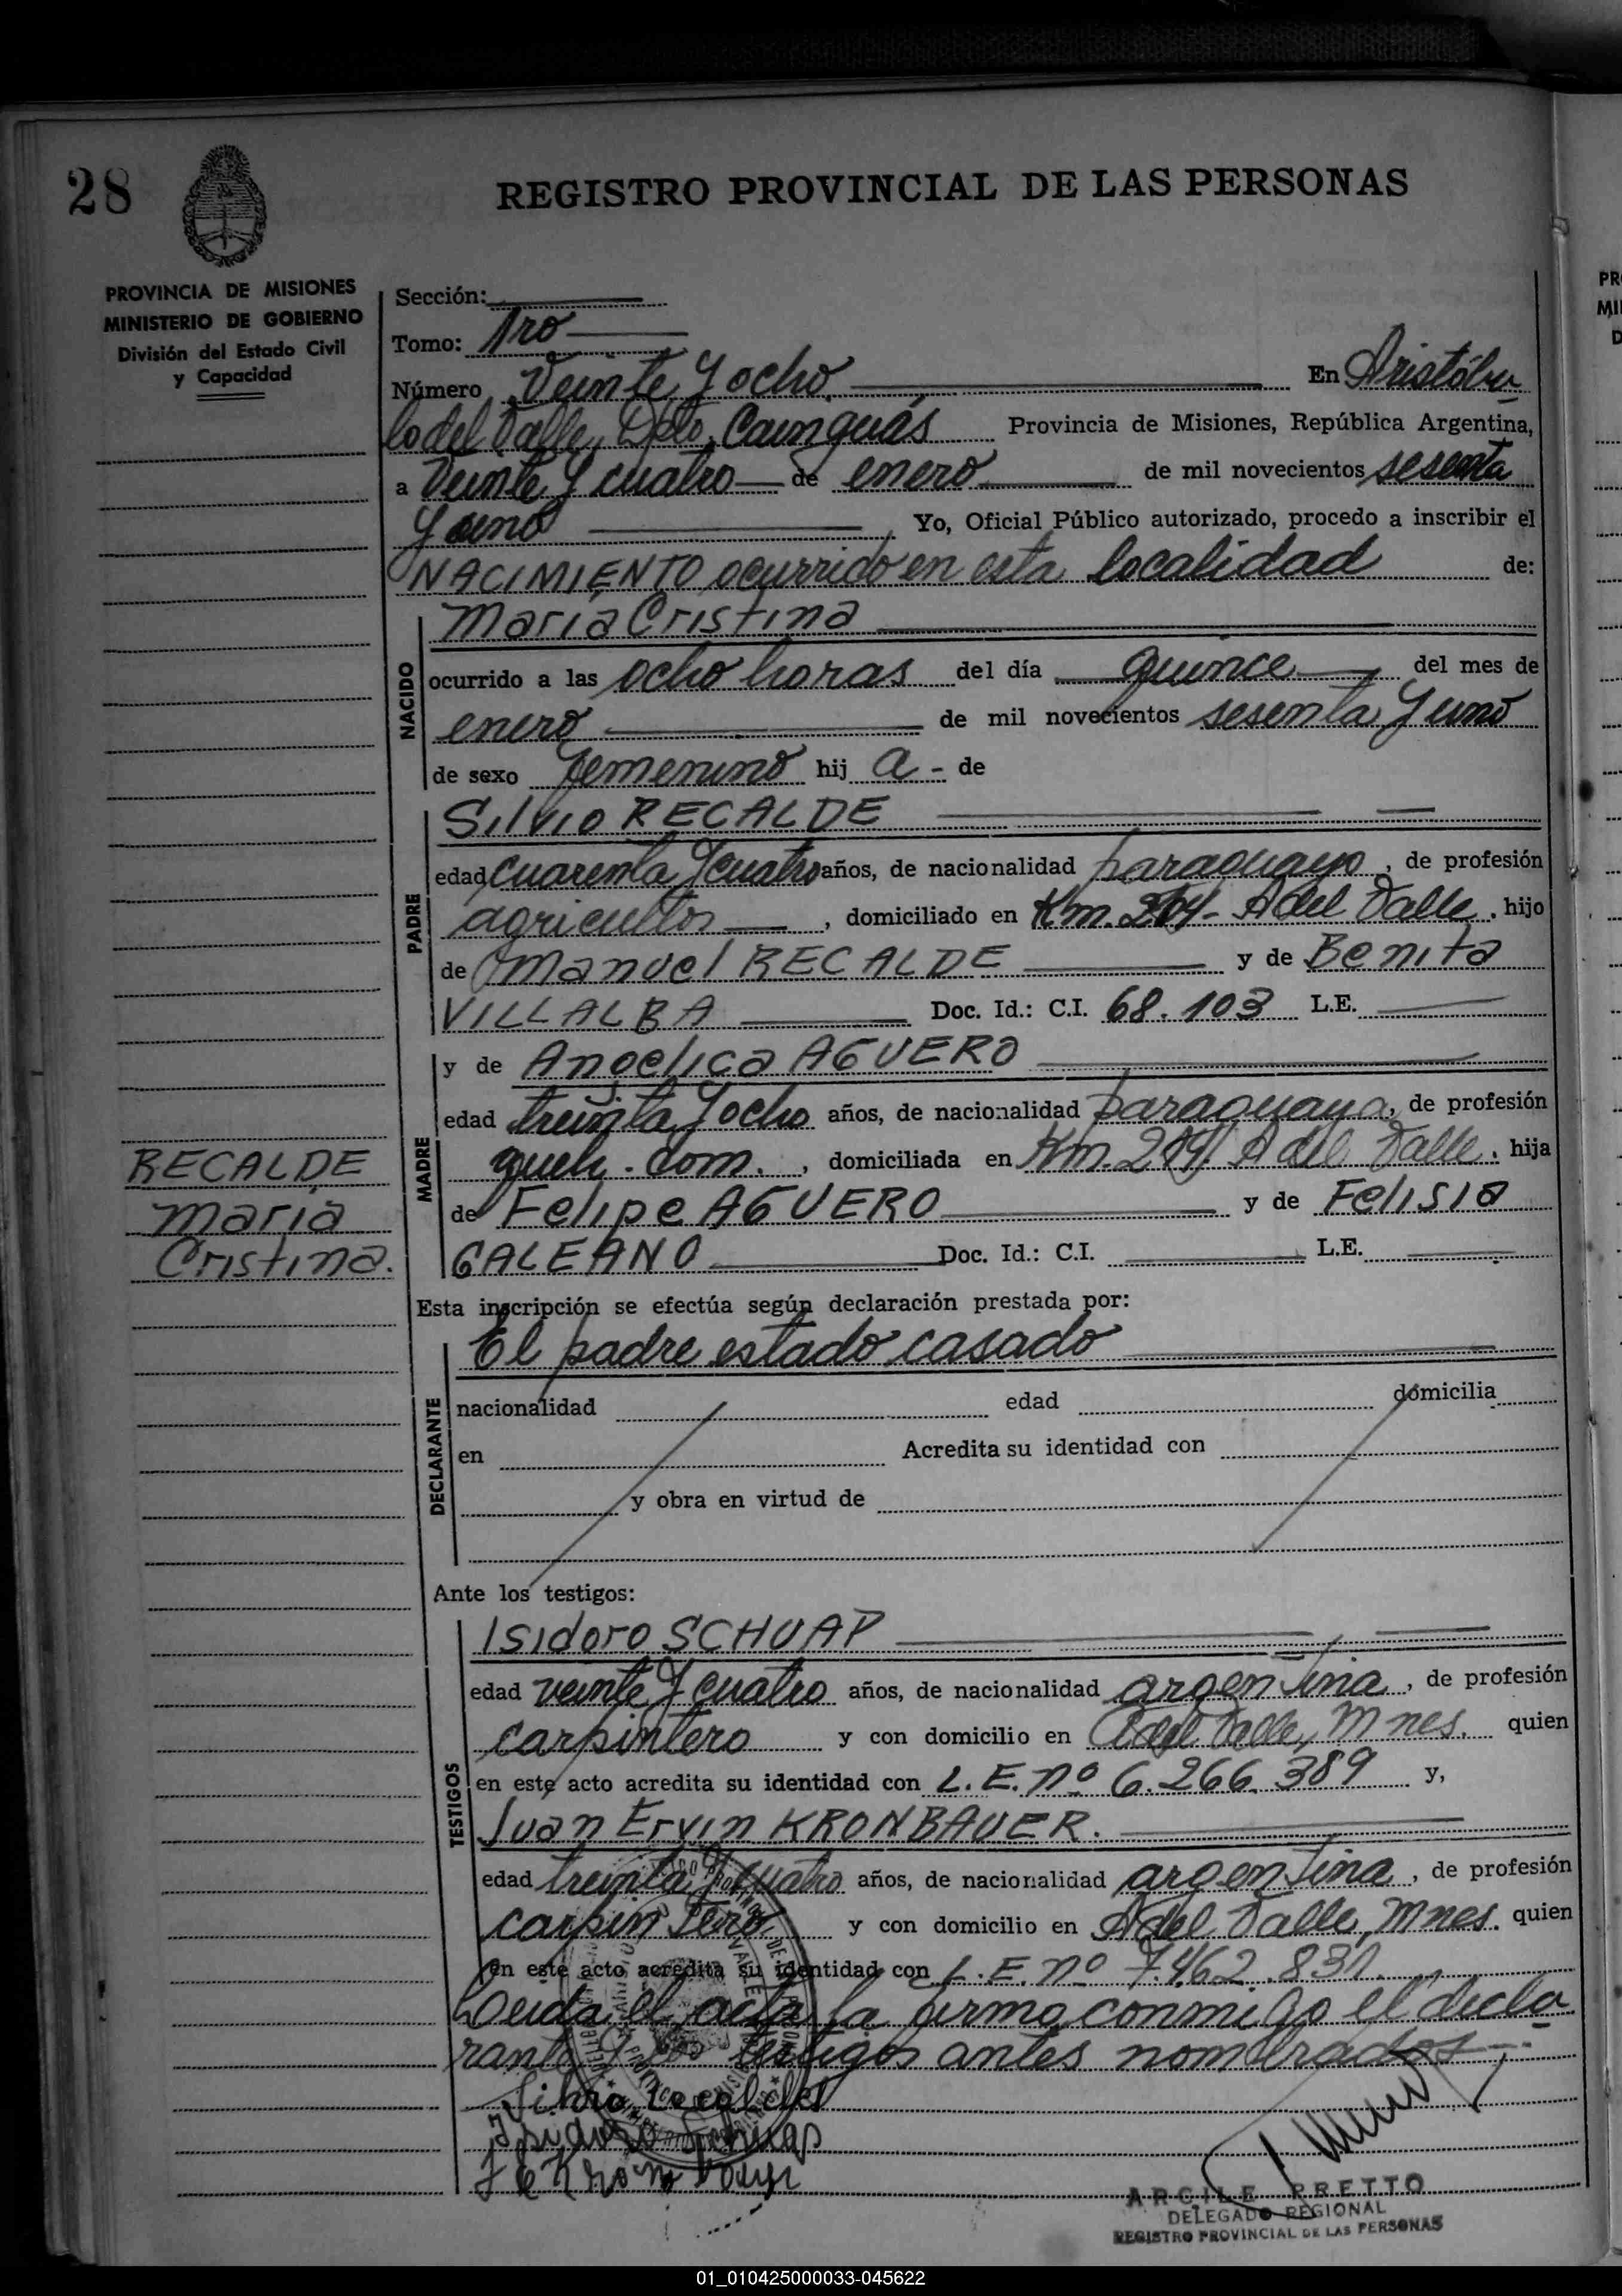 28
REGISTRO PROVINCIAL DE LAS PERSONAS
PROVINCIA DE MISIONES
MINISTERIO DE GOBIERNO
División del Estado Civil
y Capacidad
Sección:
Tomo: 1ro
Número Veinte y ocho. En Aristóbu
lo del Valle, Dpto, Cainguás Provincia de Misiones, República Argentina,
a Veinte y cuatro de enero de mil novecientos sesenta
y uno Yo, Oficial Público autorizado, procedo a inscribir el
NACIMIENTO ocurrido en esta localidad de:
NACIDO
María Cristina
ocurrido a las ocho horas del día quince del mes de
enero de mil novecientos sesenta y uno
de sexo femenino hij a - de
PADRE
Silvio RECALDE
edad cuarenta y cuatro años, de nacionalidad paraguayo, de profesión
agricultor, domiciliado en Km. A del Valle, hijo
de Manuel RECALDE y de Benita
VILLALBA Doc. Id.: C.I. 68.103 L.E.
MADRE
y de Angelica AGUERO
edad treinta y ocho años, de nacionalidad paraguaya, de profesión
queh. dom., domiciliada en Km. A del Valle, hija
de Felipe AGUERO y de Felisia
GALEANO Doc. Id.: C.I. L.E.
RECALDE
María
Cristina.
Esta inscripción se efectúa según declaración prestada por:
DECLARANTE
El padre estado casado
nacionalidad edad domicilia
en Acredita su identidad con
y obra en virtud de
Ante los testigos:
TESTIGOS
Isidoro SCHUAP
edad veinte y cuatro años, de nacionalidad argentina, de profesión
carpintero y con domicilio en A del Valle, Mnes. quien
en este acto acredita su identidad con L.E. nº 6.266.389 y,
Juan Ervin KRONBAUER.
edad treinta y cuatro años, de nacionalidad argentina, de profesión
carpintero y con domicilio en A del Valle, Mnes. quien
en este acto acredita su identidad con L.E. nº 7.462.831.
Leida el acta la firma conmigo el decla
rante y los testigos antes nombrados.
ARCILE PRETTO
DELEGADO REGIONAL
REGISTRO PROVINCIAL DE LAS PERSONAS
01_010425000033-045622